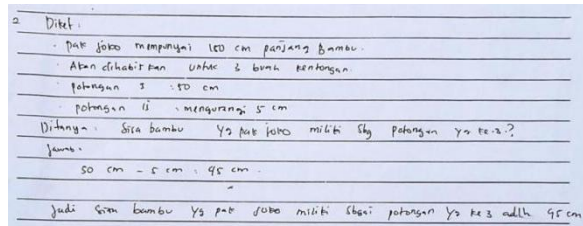 2 Diket :
· pak joko mempunyai 150 cm panjang bambu.
· Akan dihabiskan untuk 3 buah kentongan.
· potongan I : 50 cm
· potongan II : mengurangi 5 cm
Ditanya : Sisa bambu yg pak joko miliki sbg potongan yg ke-3.?
Jawab.
50 cm - 5 cm : 45 cm.
Jadi sisa bambu yg pak joko miliki sbgai potongan yg ke 3 adlh 45 cm